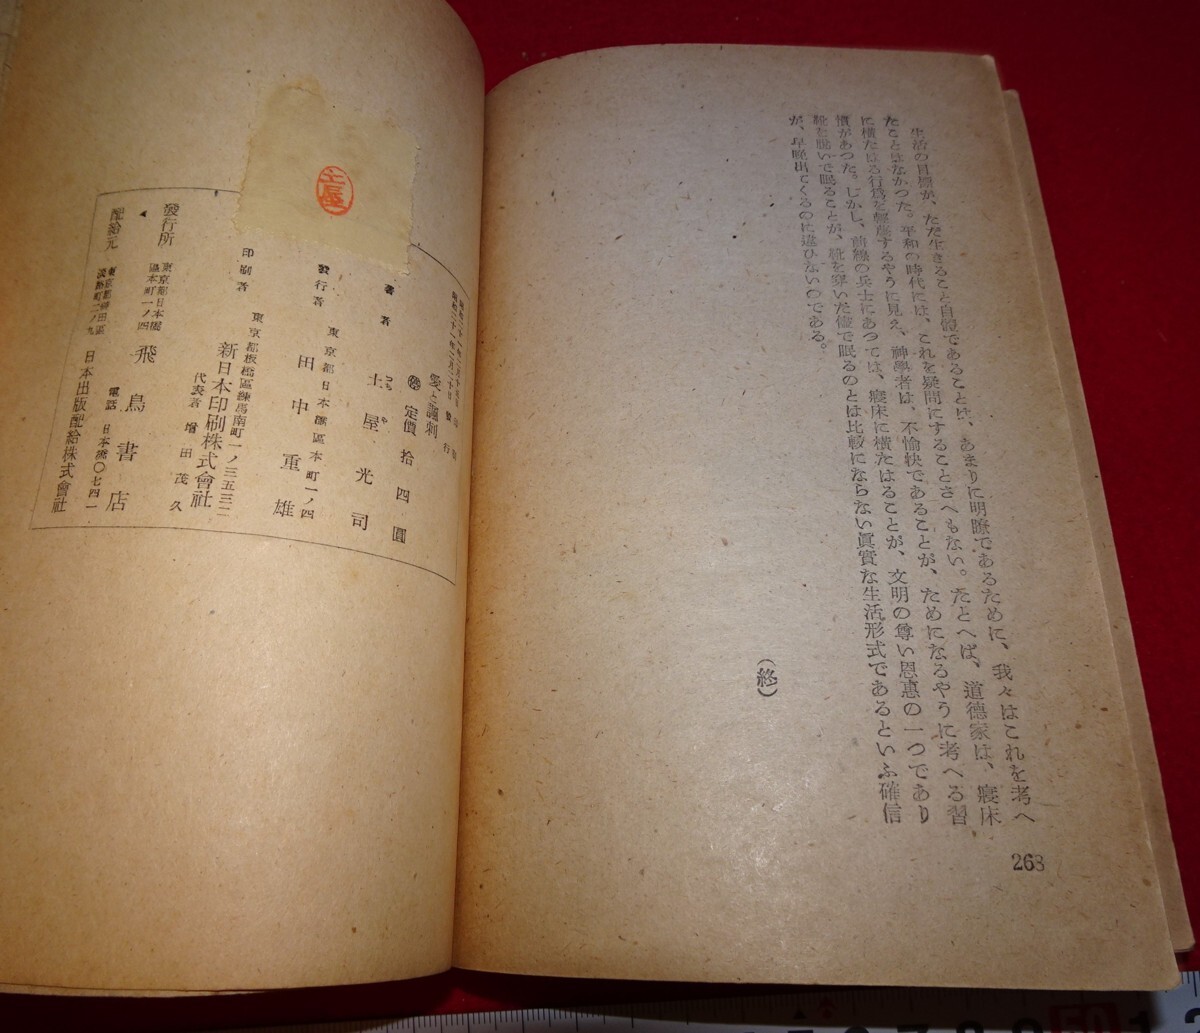 生活の目標が、ただ生きること自體であることは、あまりに明瞭であるために、我々はこれを考へ
たことはなかつた。平和の時代には、これを疑問にすることさへもない。たとへば、道德家は、寢床
に横たはる行爲を輕蔑するやうに見え、神學者は、不愉快であることが、ためになるやうに考へる習
慣があつた。しかし、前線の兵士にあつては、寢床に横たはることが、文明の尊い恩惠の一つであり
靴を脱いで眠ることが、靴を穿いた儘で眠るのとは比較にならない眞實な生活形式であるといふ確信
が、早晩出てくるのに違ひないのである。
(終)
263
愛と諷刺
定價拾四圓
著者
土屋光司
つちや
發行者
東京都日本橋區本町一ノ四
田中重雄
印刷者
東京都板橋區練馬南町一ノ三五三二
新日本印刷株式會社
代表者 增田茂久
發行所
東京都日本橋
區本町一ノ四
飛鳥書店
電話 日本橋〇七四一
配給元
東京都神田區
淡路町二ノ九
日本出版配給株式會社
土屋